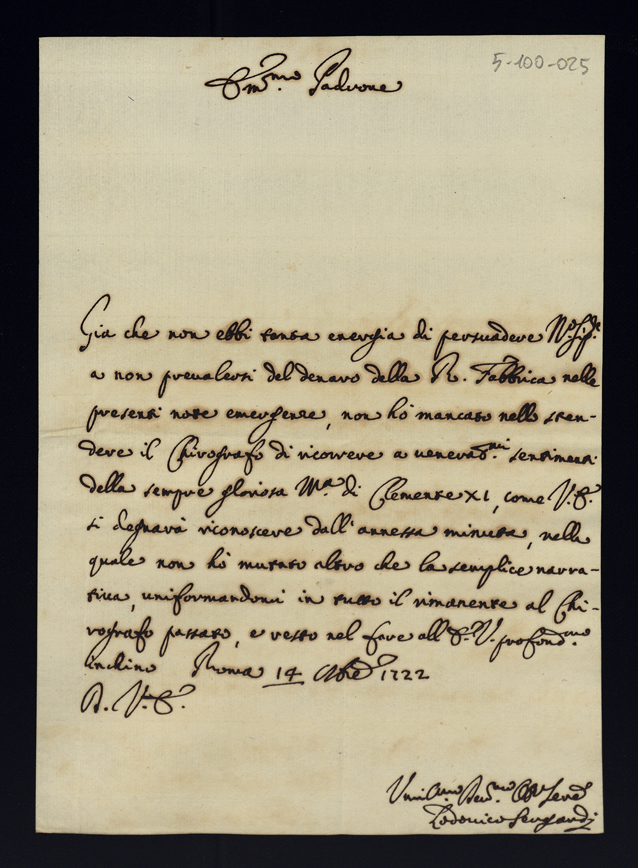 5-100-025
Em.mo Padrone
Gia che non ebbi tanta energia di persuadere N.ro Sig.re
a non prevalersi del denaro della R. Fabbrica nelle
presenti note emergenze, non hò mancato nello sten-
dere il Chirografo di ricorrere a venerat.mi sentimenti
della sempre gloriosa M.a di Clemente XI, come V.E.
si degnarà riconoscere dall'annessa minuta, nella
quale non hò mutato altro che la semplice narra-
tiva, uniformandomi in tutto il rimanente al Chi-
rografo passato, e resto nel fare all'E.V. profond.mo
inchino Roma 14 1722
D. V.ra E.
Umiliss.mo Dev.mo Serv.e
Lodovico Sergardi